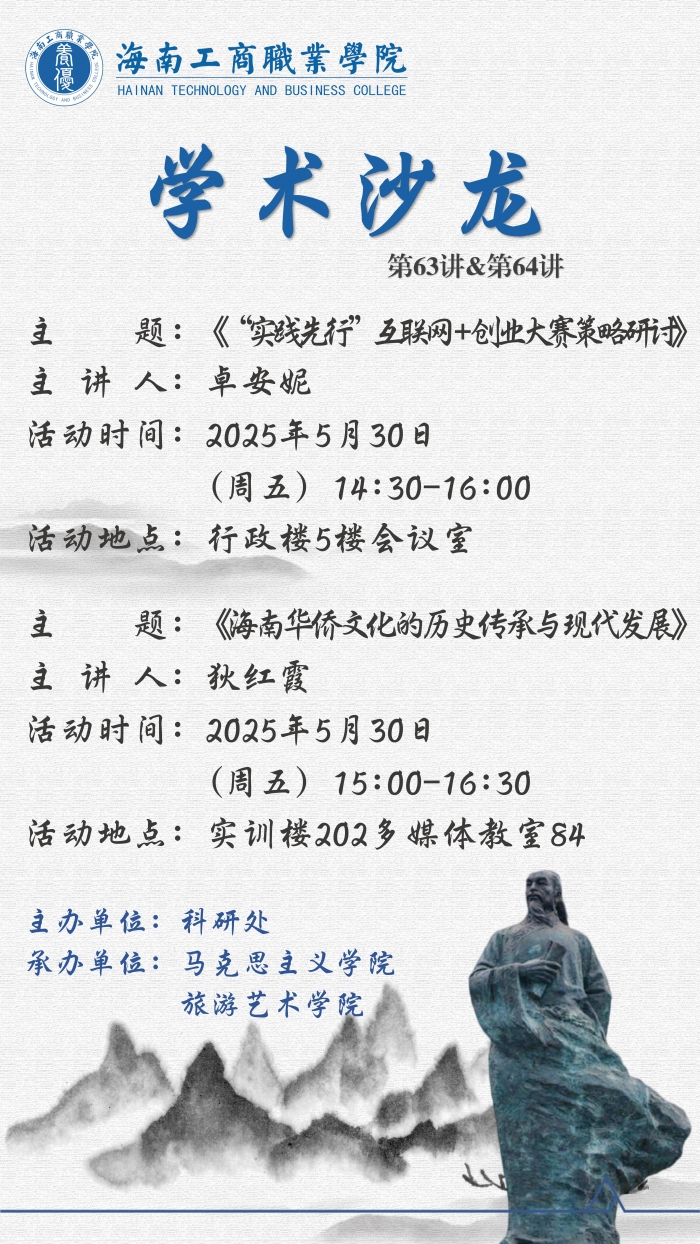 海南工商職業學院
HAINAN TECHNOLOGY AND BUSINESS COLLEGE
学术沙龙
第63讲&第64讲
主题：《“实践先行”互联网+创业大赛策略研讨》
主讲人：卓安妮
活动时间：2025年5月30日
（周五）14:30-16:00
活动地点：行政楼5楼会议室
主题：《海南华侨文化的历史传承与现代发展》
主讲人：狄红霞
活动时间：2025年5月30日
（周五）15:00-16:30
活动地点：实训楼202多媒体教室84
主办单位：科研处
承办单位：马克思主义学院
旅游艺术学院